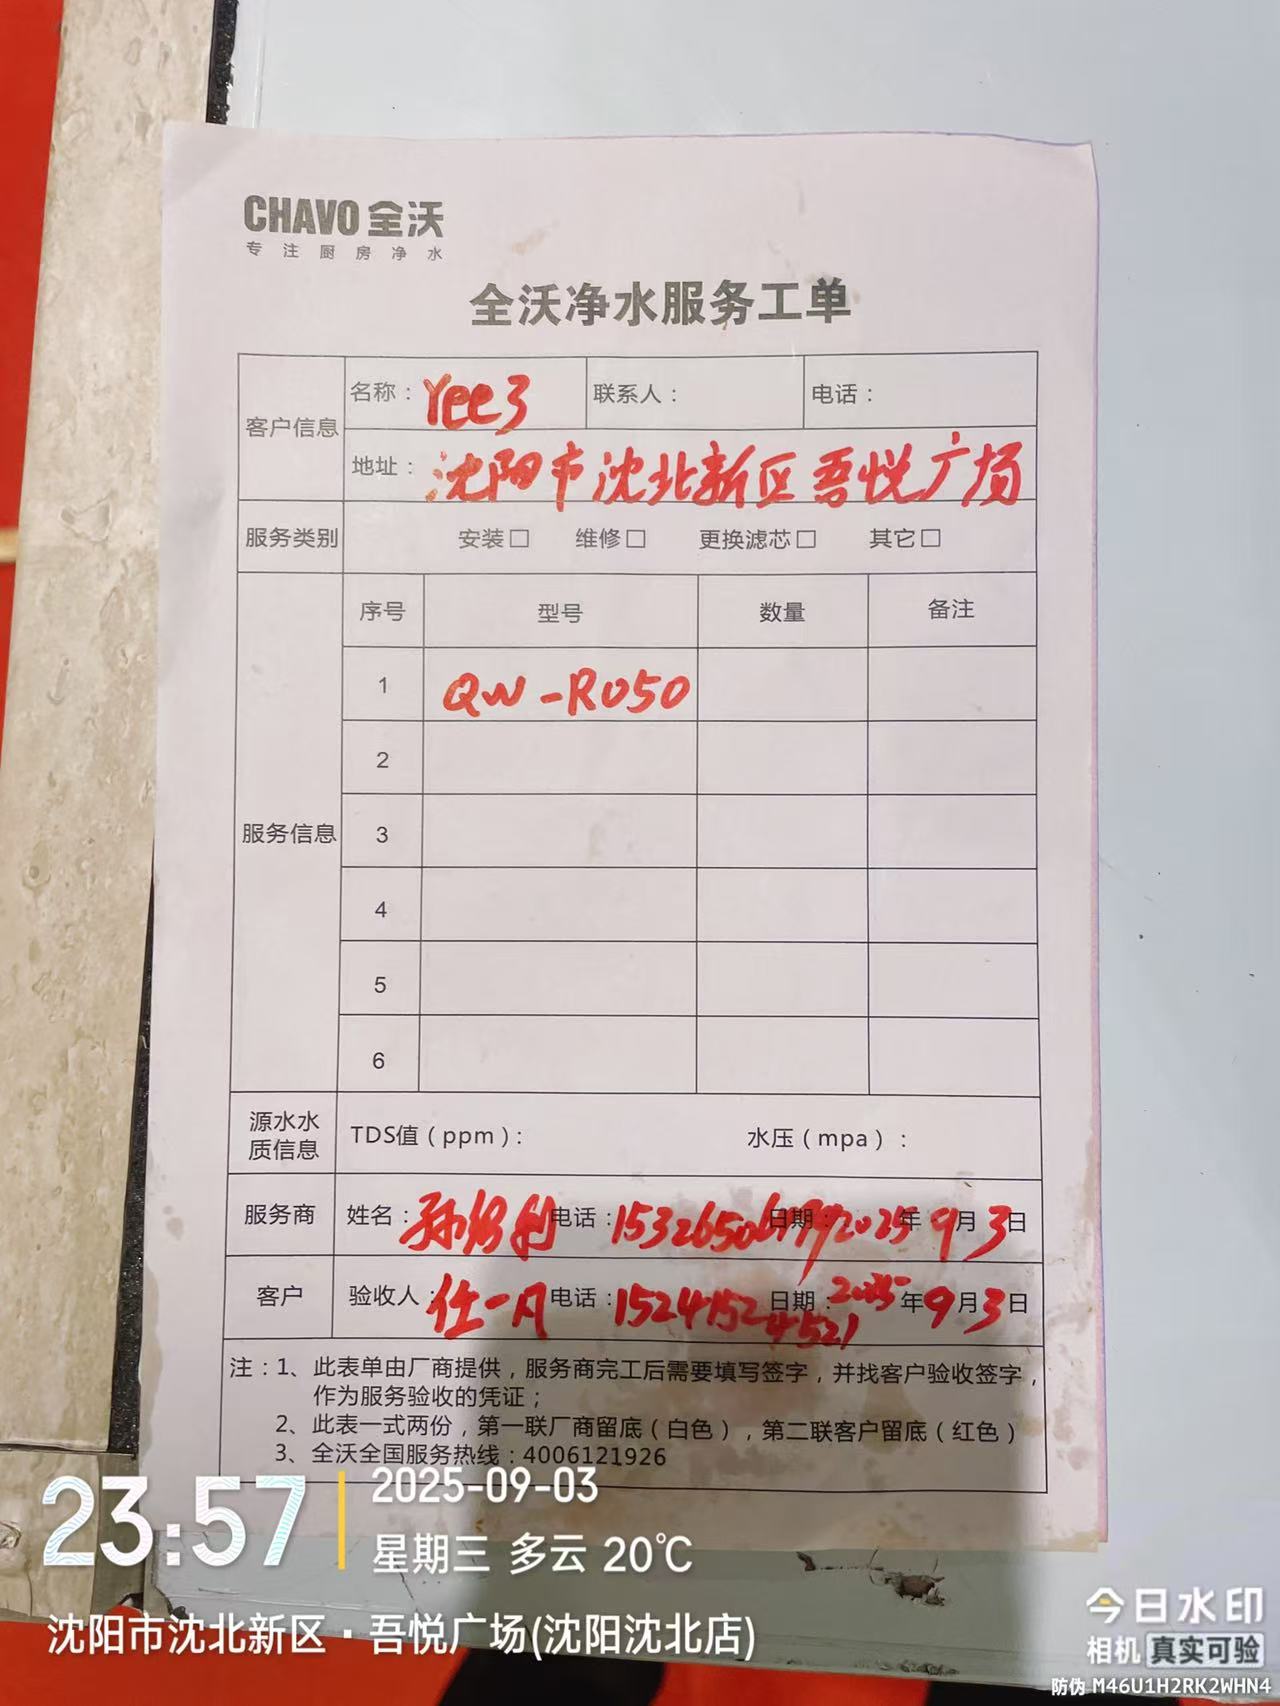 CHAVO 全沃
专注厨房净水
全沃净水服务工单
客户信息 名称：Yee3 联系人： 电话：
地址：沈阳市沈北新区吾悦广场
服务类别 安装□ 维修□ 更换滤芯□ 其它□
服务信息 序号 型号 数量 备注
1 QW-RO50
2
3
4
5
6
源水水质信息 TDS值（ppm）： 水压（mpa）：
服务商 姓名：孙 电话： 日期：2025年9月3日
客户 验收人：任一凡 电话：15241524521 日期：2025年9月3日
注：1、此表单由厂商提供，服务商完工后需要填写签字，并找客户验收签字，
作为服务验收的凭证；
2、此表一式两份，第一联厂商留底（白色），第二联客户留底（红色）
3、全沃全国服务热线：4006121926
23:57 2025-09-03
星期三 多云 20℃
沈阳市沈北新区·吾悦广场(沈阳沈北店)
今日水印
相机 真实可验
防伪 M46U1H2RK2WHN4